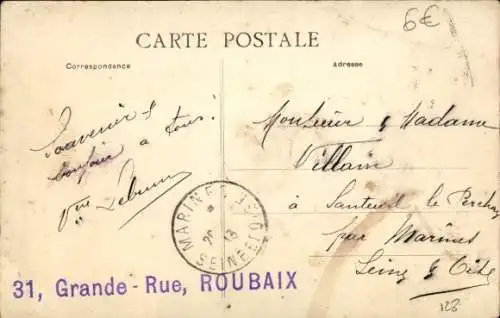 6€
CARTE POSTALE
Correspondance
Adresse
Souvenir &
bonjour a tous!
Lebrun
Monsieur & Madame
Villain
à Santeuil le Perchay
par Marines
Seine & Oise
MARINES
20
13
SEINE ET OISE
31, Grande-Rue, ROUBAIX
128